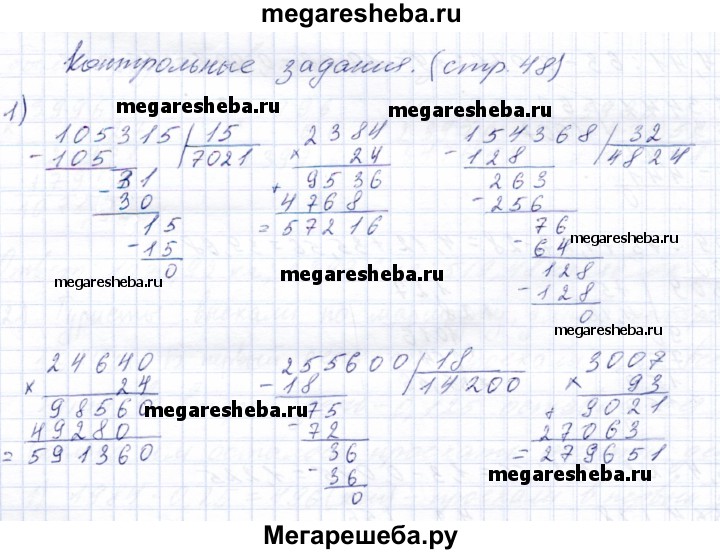 megaresheba.ru
Контрольные задания. (стр. 48)
1)
megaresheba.ru
megaresheba.ru
105315 | 15
- 105 | 7021
31
- 30
15
- 15
0
megaresheba.ru
2384
× 24
9536
+ 4768
= 57216
megaresheba.ru
154368 | 32
- 128 | 4824
263
- 256
76
- 64
128
- 128
0
megaresheba.ru
megaresheba.ru
24640
× 24
98560
49280
= 591360
megaresheba.ru
255600 | 18
- 18 | 14200
75
- 72
36
- 36
0
3007
× 93
9021
+ 27063
= 279651
megaresheba.ru
Мегарешеба.ру